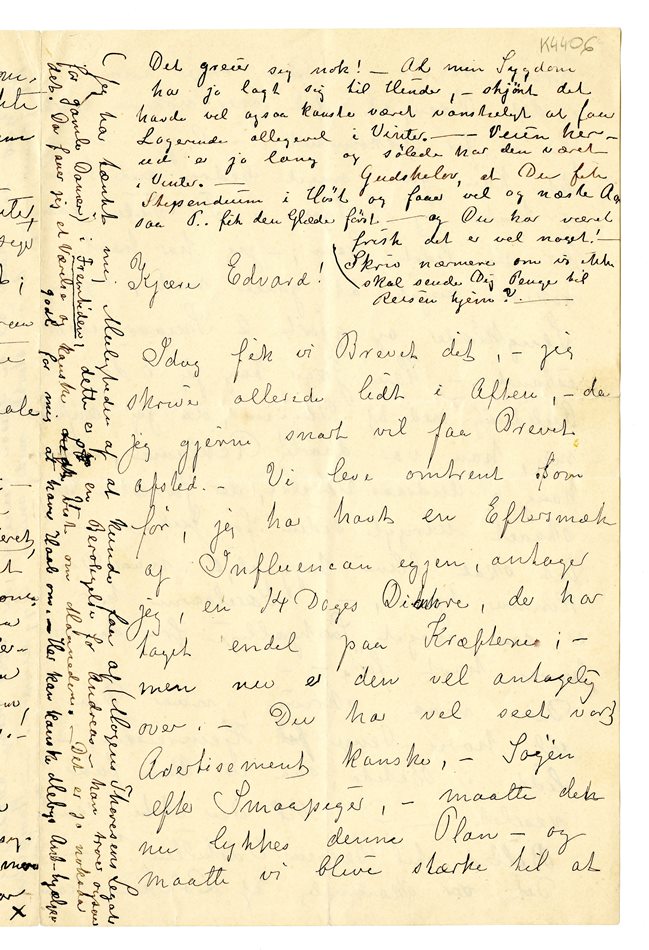 K4406
Det greier sig nok! – At min Sygdom
har jo lagt sig til Hinder, – skjønt det
havde vel ogsaa kanske været vanskeligt at faa
Logerende allegevel i Vinter. – – Veien her-
ud er jo lang og søledes har den været
i Vinter. – Gudskelov, at Du fik
Stipendium i Høst og faaer vel og næste Aar
saa P.. fik den Glæde først – og Du har været
frisk det er vel noget! –
(Skriv nærmere om vi ikke
skal sende Dig Penge til
Reisen hjem?. –
Kjære Edvard!
Idag fik vi Brevet dit, – jeg
skriver allerede lidt i Aften, – da
jeg gjerne snart vil faa Brevet
afsted. – Vi leve omtrent som
før, jeg har havt en Eftersmæk
af Influencan egjen, antager
jeg, en 14 Dages, der har
taget endel paa Kræfterne; –
men nu er den vel antagelig
over. – Du har vel seet vort
Avertisement kanske, – Søgen
efter Smaapiger, – maatte den
nu lykkes denne Plan – og
maatte vi blive stærke til at
(Jeg har tænkt mig Muligheden af at kunde faa af (Mogens Thoresens Legat
for gamle Damer) i Fremtiden, dette er en Beroligelse for Andreas – han tror ogsaa
det. Da faaer jeg et Værelse og kanske lidt om Maaneden. – Det er jo
godt for mig at have Haab om. – Her kan kanske